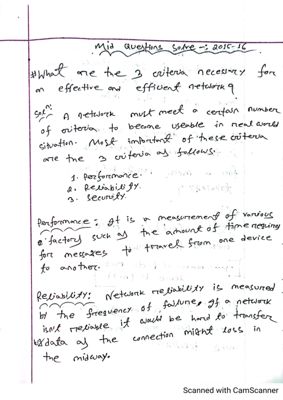 Mid Questions Solve -: 2015-16
# What are the 3 criteria necessary for
an effective and efficient network?
Soln: A network must meet a certain number
of criteria to become useable in real world
situation. Most important of these criteria
are the 3 criteria as follows.
1. Performance.
2. Reliability.
3. Security
Performance: It is a measurement of various
factors such as the amount of time requires
for messages to travel from one device
to another.
Reliability: Network reliability is measured
by the frequency of failure, If a network
isn't reliable it would be hard to transfer
data as the connection might loss in
the midway.
Scanned with CamScanner